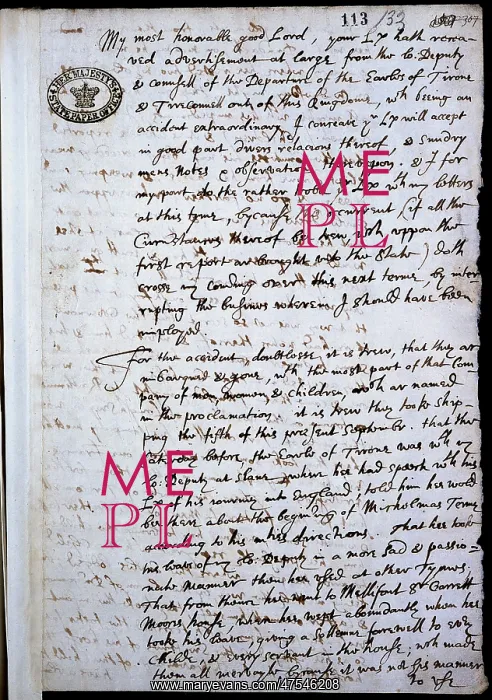 113
133
HER MAJESTY'S STATE PAPER OFFICE
My most honorable good Lord, your Lp hath recea-
ved advertisement at large from the lo: Deputy
& counsell of the Departure of the Earles of Tirone
& Tirconnell out of this Kingdome, wch being an
accident extraordinary I conceave yr Lp will accept
in good part divers relacions thereof, & sundry
mens Notes & observations thereupon. & I for
my part do the rather Lp wth my letters
at this tyme, bycause occurrent (if all the
Circumstances thereof be trew, wch uppon the
first report are brought unto the State) doth
crosse my coming over this next terme, by inter-
rupting the busines wherein I should have been
imployed.
For the accident, doubtlesse it is trew, that they ar
imbarqued & gone, with the most part of that Com-
pany of men, women, & children, wch ar named
in the proclamation. it is trew they tooke ship-
ping the of this present September. that the
Saterday before, the Earle of Tirone was wth my
lo: Deputy at Slane, where he had speech with his
Lp of his iourney into England; told him he wold
be there about the begining of Michelmas Terme
according to his mties directions. That he tooke
his leave of my lo: Deputy in a more sad & passio-
nate manner then he used at other tymes:
That from thence he went to Mellifont Sr Garrett
Moores house, where he wept abundantly when he
tooke his leave, giving a solemne farewell to every
Childe, & every servant in the house; wch made
them all mervayle, because it was not his manner
to use
ME
PL
ME
PL
www.maryevans.com/47546208